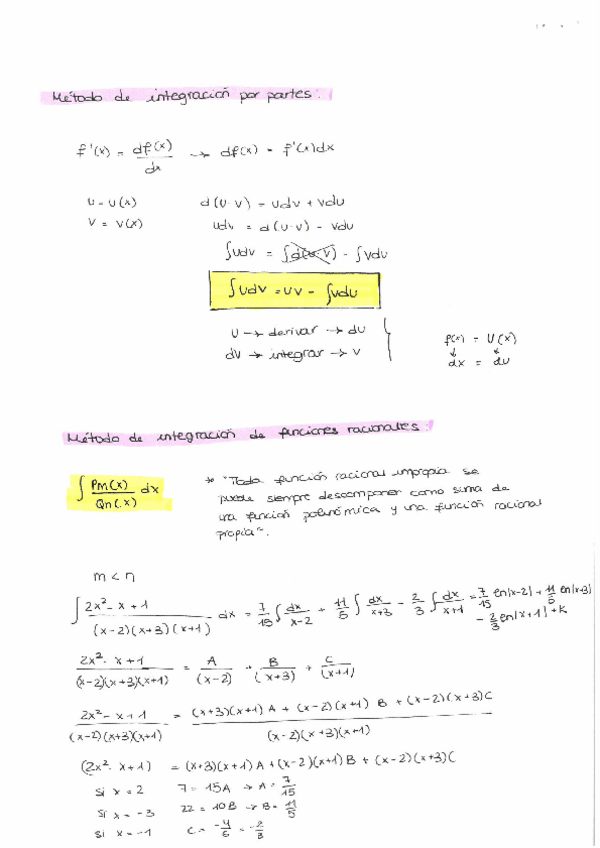 Método de integración por partes:
f'(x) = df(x)/dx → df(x) = f'(x)dx
U = U(x)    d(U·V) = Udv + Vdu
V = V(x)    Udv = d(U·V) - Vdu
∫Udv = ∫d(U·V) - ∫Vdu
∫Udv = UV - ∫Vdu
U → derivar → dU
dV → integrar → V
f(x) = U(x)
↓ ↓
dx = du
Método de integración de funciones racionales:
∫ Pm(x)/Qn(x) dx
* "Toda función racional impropia se
puede siempre descomponer como suma de
una función polinómica y una función racional
propia".
m < n
∫ (2x² - x + 1)/((x-2)(x+3)(x+1)) dx = 7/15 ∫ dx/(x-2) + 11/5 ∫ dx/(x+3) - 2/3 ∫ dx/(x+1) = 7/15 ln|x-2| + 11/5 ln|x+3|
- 2/3 ln|x+1| + K
(2x² - x + 1)/((x-2)(x+3)(x+1)) = A/(x-2) + B/(x+3) + C/(x+1)
(2x² - x + 1)/((x-2)(x+3)(x+1)) = ((x+3)(x+1)A + (x-2)(x+1)B + (x-2)(x+3)C)/((x-2)(x+3)(x+1))
(2x² - x + 1) = (x+3)(x+1)A + (x-2)(x+1)B + (x-2)(x+3)C
Si x = 2    7 = 15A → A = 7/15
Si x = -3    22 = 10B → B = 11/5
Si x = -1    C = -4/6 = -2/3